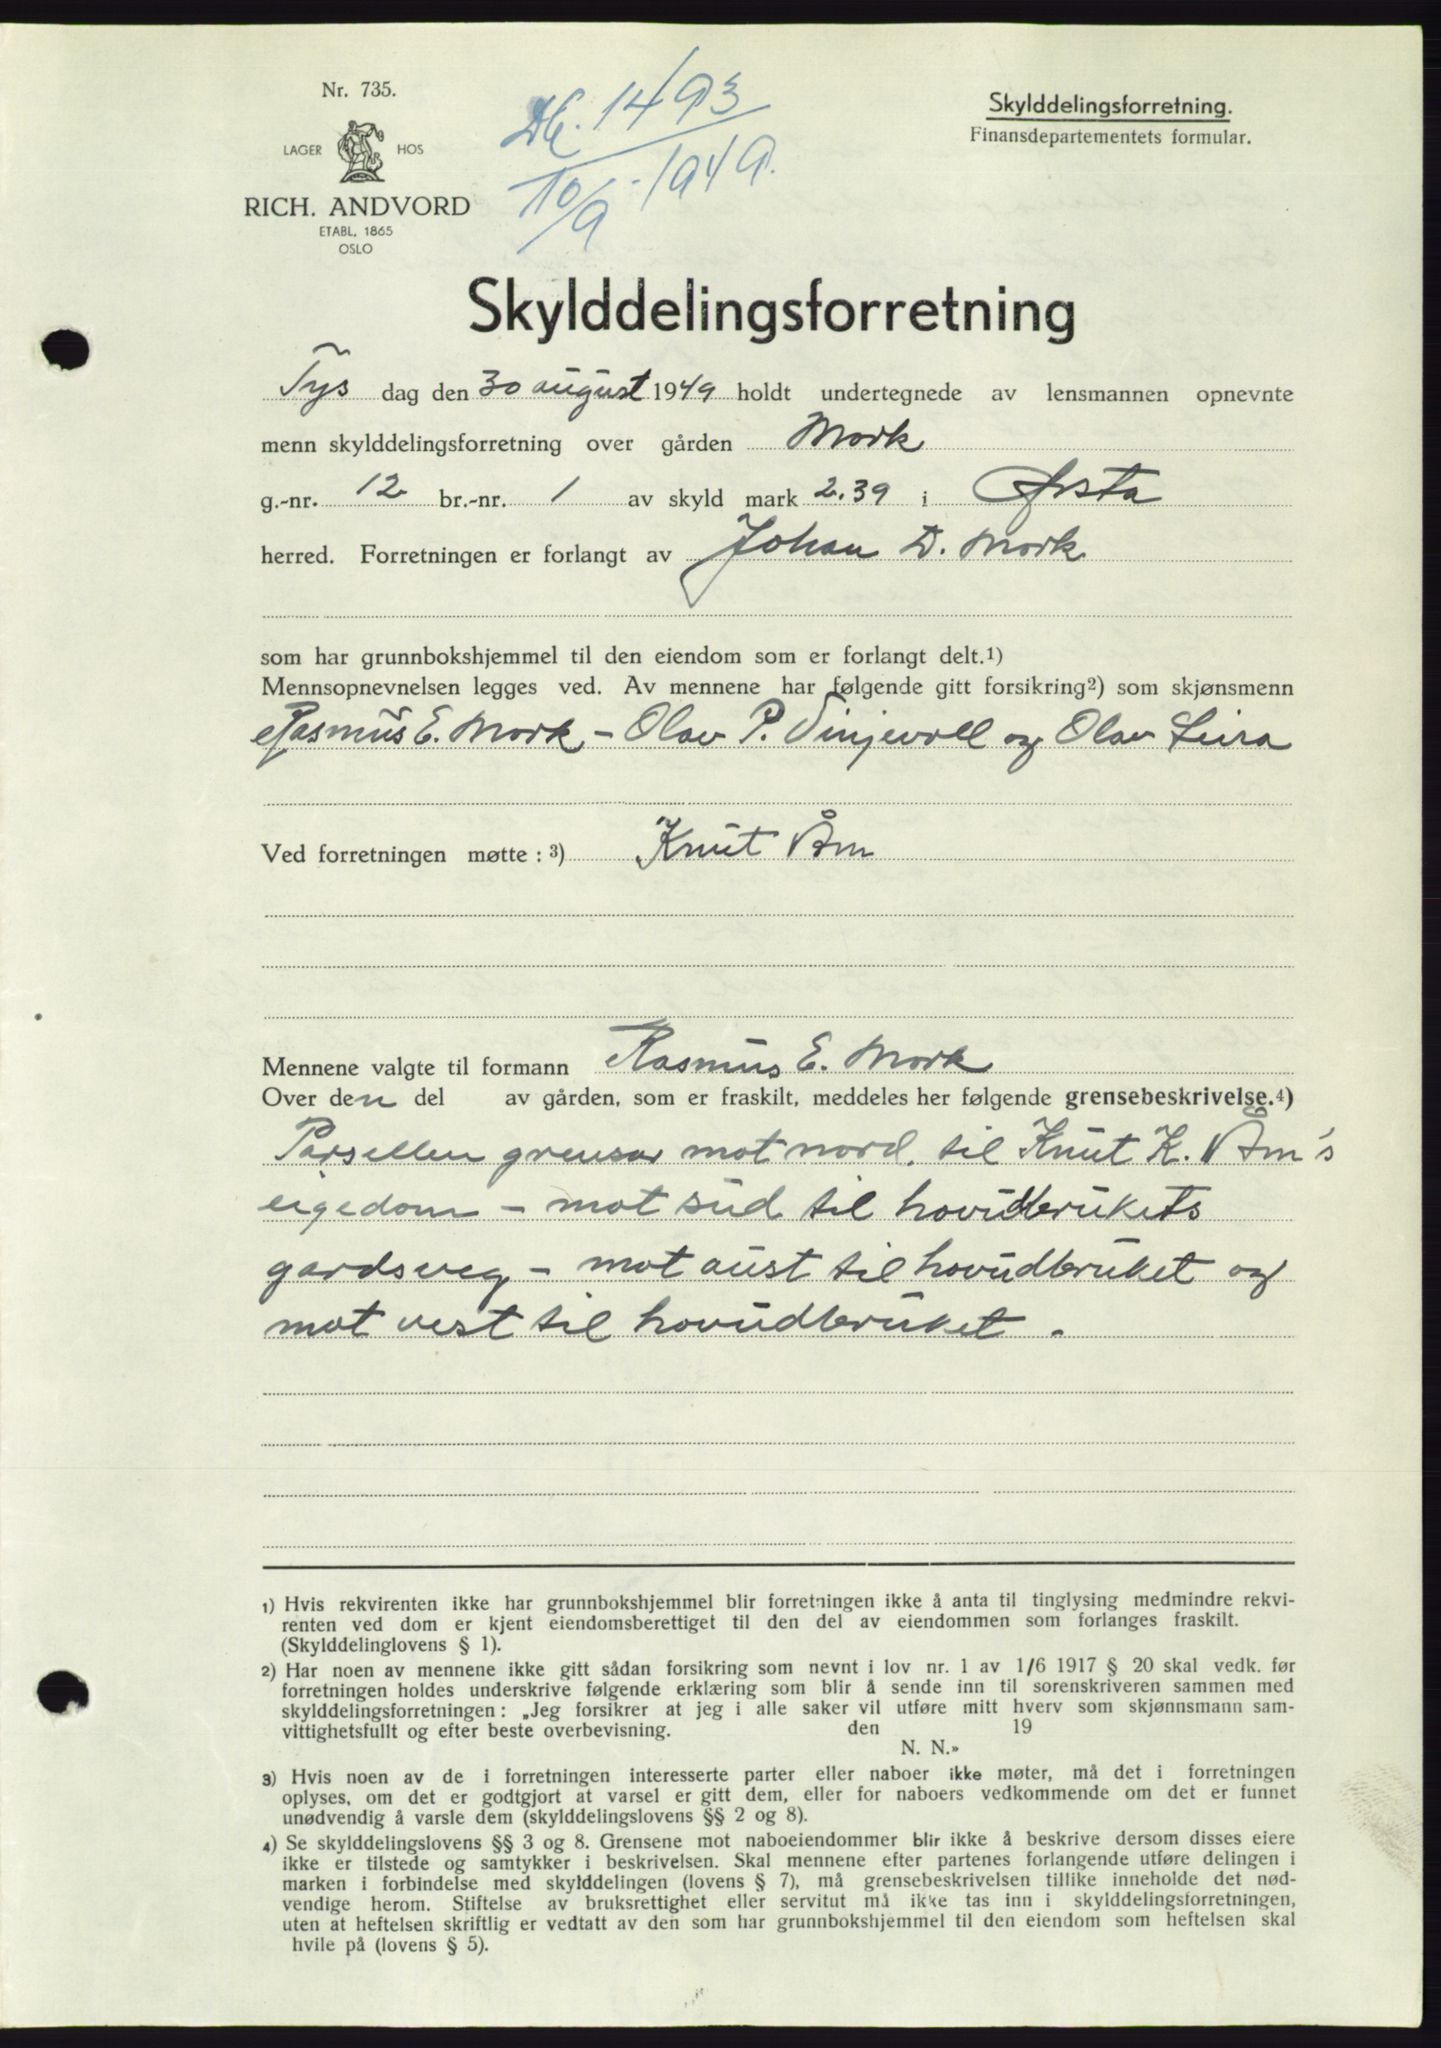 Nr. 735.
LAGER HOS
RICH. ANDVORD
ETABL. 1865
OSLO
Db. 1493
10/9 - 1949.
Skylddelingsforretning.
Finansdepartementets formular.
Skylddelingsforretning
Tys dag den 30 august 1949 holdt undertegnede av lensmannen opnevnte
menn skylddelingsforretning over gården Mork
g.-nr. 12 br.-nr. 1 av skyld mark 2.39 i Ørsta
herred. Forretningen er forlangt av Johan D. Mork
som har grunnbokshjemmel til den eiendom som er forlangt delt.1)
Mennsopnevnelsen legges ved. Av mennene har følgende gitt forsikring2) som skjønsmenn
Rasmus E. Mork - Olav P. Vinjevoll og Olav Leira
Ved forretningen møtte: 3) Knut Åm
Mennene valgte til formann Rasmus E. Mork
Over den del av gården, som er fraskilt, meddeles her følgende grensebeskrivelse.4)
Parsellen grensar mot nord. til Knut K. Åm's
eigedom - mot sud til hovudbrukets
gardsveg - mot aust til hovudbruket og
mot vest til hovudbruket.
1) Hvis rekvirenten ikke har grunnbokshjemmel blir forretningen ikke å anta til tinglysing medmindre rekvi-
renten ved dom er kjent eiendomsberettiget til den del av eiendommen som forlanges fraskilt.
(Skylddelinglovens § 1).
2) Har noen av mennene ikke gitt sådan forsikring som nevnt i lov nr. 1 av 1/6 1917 § 20 skal vedk. før
forretningen holdes underskrive følgende erklæring som blir å sende inn til sorenskriveren sammen med
skylddelingsforretningen: „Jeg forsikrer at jeg i alle saker vil utføre mitt hverv som skjønnsmann sam-
vittighetsfullt og efter beste overbevisning. den 19
N. N.»
3) Hvis noen av de i forretningen interesserte parter eller naboer ikke møter, må det i forretningen
oplyses, om det er godtgjort at varsel er gitt dem, eller for naboers vedkommende om det er funnet
unødvendig å varsle dem (skylddelingslovens §§ 2 og 8).
4) Se skylddelingslovens §§ 3 og 8. Grensene mot naboeiendommer blir ikke å beskrive dersom disses eiere
ikke er tilstede og samtykker i beskrivelsen. Skal mennene efter partenes forlangende utføre delingen i
marken i forbindelse med skylddelingen (lovens § 7), må grensebeskrivelsen tillike inneholde det nød-
vendige herom. Stiftelse av bruksrettighet eller servitut må ikke tas inn i skylddelingsforretningen,
uten at heftelsen skriftlig er vedtatt av den som har grunnbokshjemmel til den eiendom som heftelsen skal
hvile på (lovens § 5).